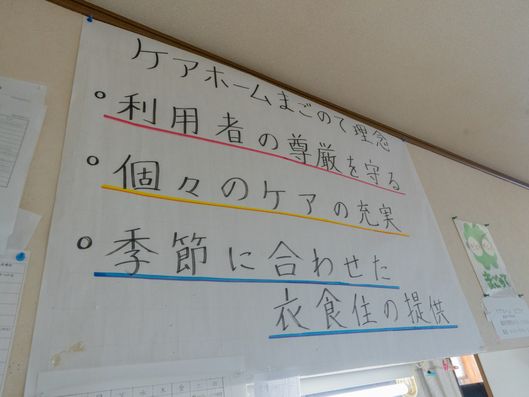 ケアホームまごのて理念
。利用者の尊厳を守る
。個々のケアの充実
。季節に合わせた
衣食住の提供